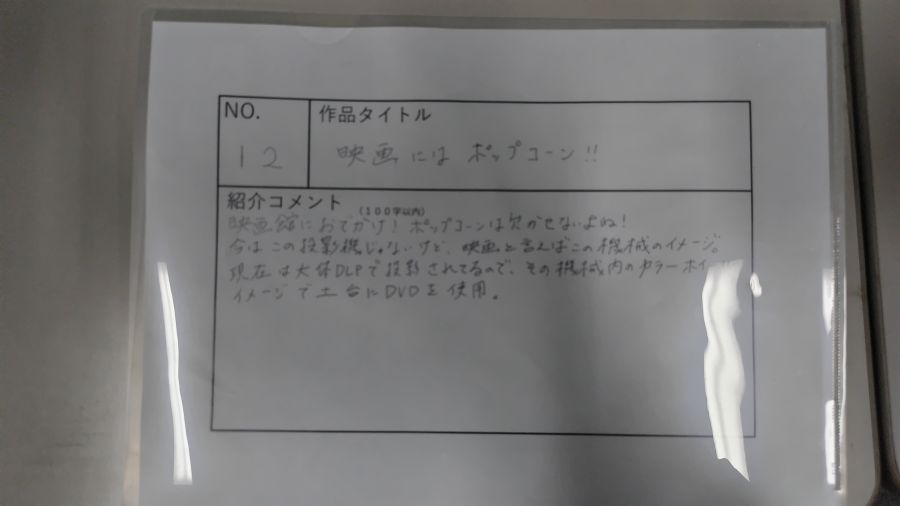 NO.
作品タイトル
12
映画には ポップコーン!!
紹介コメント
(100字以内)
映画館におでかけ!ポップコーンは欠かせないよね!
今はこの投影機じゃないけど、映画と言えばこの機械のイメージ。
現在は大体DLPで投影されてるので、その機械内のカラーホイ
イメージで土台にDVDを使用。